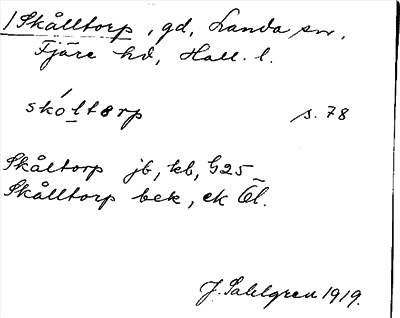 1 Skålltorp, gd, Landa sn,
Fjäre hd, Hall. l.
skóltorp s. 78
Skåltorp jb, kb, G25
Skålltorp bek, ek Öl.
J. Sahlgren 1919.